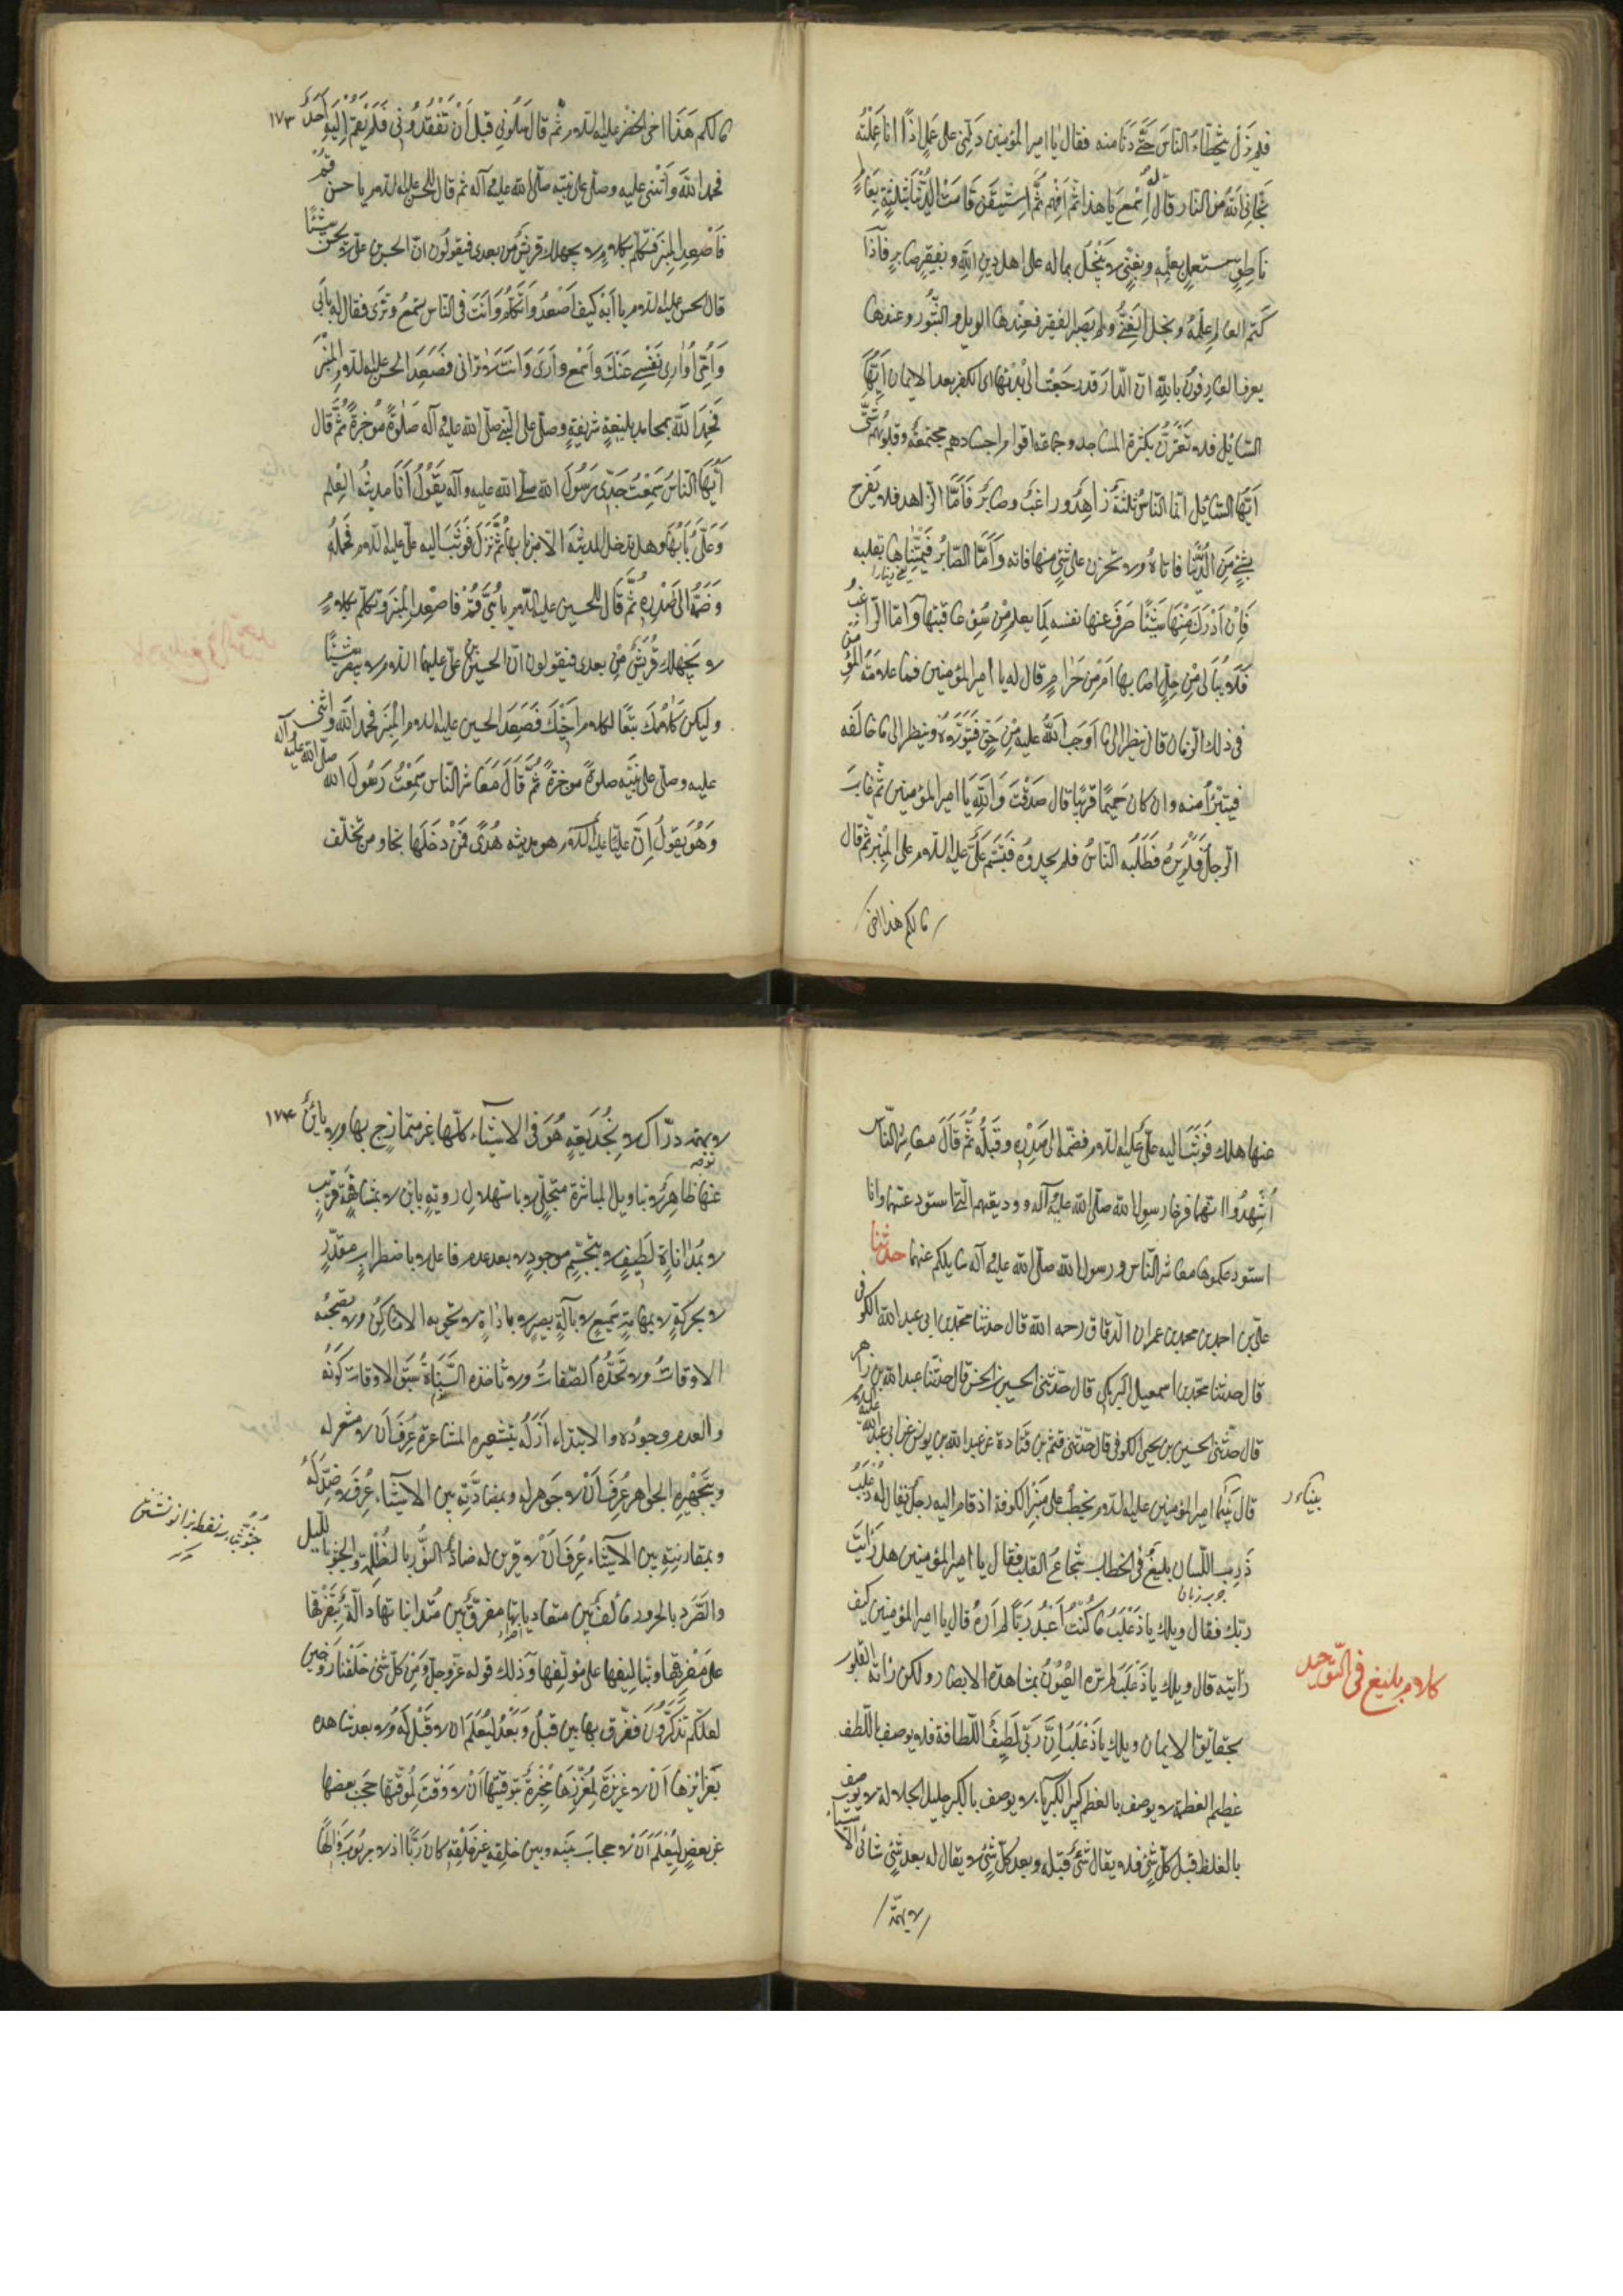 فلم يزل يتخطّاء الناس حتّى دَنا منه فقال يا امير المؤمنين دلّنى على عملٍ اذا انا عملته
نجّانى الله من النار قال له اِسْمع يا هذا ثم افهم ثمّ استيقن قامت الدّنيا بثلثة بعالمٍ
ناطقٍ مستعملٍ بعلمه وبغنىٍّ لا يبخل بماله على اهل دين الله وبفقيرٍ صابرٍ فاذا
كتم العالم علمه وبخل الغنىّ ولم يصبر الفقير فعندها الويل والثبور وعندها
يعرف العارفون بالله انّ الدّار قد رجعت الى بدئها اى الكفر بعد الايمان ايّها
السّائل فلا تغترّن بكثرة المساجد وجماعة اقوام اجسادهم مجتمعة وقلوبهم شتّى
ايّها السّائل انّما النّاس ثلثة زاهدٌ وراغبٌ وصابرٌ فامّا الزّاهد فلا يفرح
بشئ من الدّنيا فاتاه ولا يحزن على شئ منها فاته وامّا الصّابر فيتمنّاها بقلبه
فان ادرك منها شيئًا صرف عنها نفسه لما يعلم من سوء عاقبتها وامّا الرّاغب
فلا يبالى من حلٍّ اصابها ام من حرامٍ قال له يا امير المؤمنين فما علامة المؤمن
فى ذلك الزمان قال ينظر الى ما اوجب الله عليه من حقٍّ فيتولاه وينظر الى ما خالفه
فيتبرّأ منه وان كان حميمًا قريبًا قال صدقت والله يا امير المؤمنين ثم غاب
الرّجل فلم نره فطلبه النّاس فلم يجدوه فتبسّم علىٌّ عليه السّلام على المنبر ثم قال
ما لكم هذا اخى
ما لكم هذا اخى الخضر عليه السّلام ثمّ قال سلونى قبل ان تفقدونى فلم يقم اليه احدٌ ١٧٣
فحمد الله واثنى عليه وصلّى على نبيّه صلّى الله عليه وآله ثم قال للحسن عليه السّلام يا حسن قم
فاصعد المنبر فتكلّم بكلامٍ لا يجهلك قريش من بعدى فيقولون انّ الحسن بن علىّ لا يحسن شيئًا
قال الحسن عليه السّلام يا ابه كيف اصعد واتكلّم وانت فى النّاس تسمع وترى فقال له بابى
وامّى اوارى نفسى عنك واسمع وارى وانت لا ترانى فصعد الحسن عليه السّلام المنبر
فحمد الله بمحامد بليغةٍ شريفةٍ وصلّى على النّبى صلّى الله عليه وآله صلوةً موجزةً ثمّ قال
ايّها النّاس سمعت جدّى رسول الله صلى الله عليه وآله يقول انا مدينة العلم
وعلىٌّ بابها وهل تدخل المدينة الا من بابها ثمّ نزل فوثب اليه علىّ عليه السّلام فحمله
وضمّه الى صدره ثمّ قال للحسين عليه السّلام يا بنىّ قم فاصعد المنبر وتكلّم بكلامٍ
لا يجهلك قريش من بعدى فيقولون انّ الحسين بن علىّ عليهما السّلام لا يبصر شيئًا
وليكن كلامك تبعًا لكلام اخيك فصعد الحسين عليه السلام المنبر فحمد الله واثنى
عليه وصلّى على نبيّه صلوةً موجزةً ثمّ قال معاشر النّاس سمعت رسول الله صلّى الله عليه وآله
وهو يقول انّ عليّا عليه السّلام هو مدينة هُدًى فمن دخلها نجا ومن تخلّف
عنها هلك فوثب اليه علىٌّ عليه السّلام فضمّه الى صدره وقبّله ثمّ قال معاشر النّاس
اُشهدوا انّهما فرخا رسول الله صلّى الله عليه وآله ووديعتهم الّتى استودعتها وانا
استودعكموها معاشر النّاس ورسول الله صلّى الله عليه وآله سائلكم عنهما حدثنا
علىّ بن احمد بن محمد بن عمران الدّقاق رحمه الله قال حدثنا محمّد بن ابى عبد الله الكوفى
قال حدثنا محمّد بن اسمعيل البرمكى قال حدّثنى الحسين بن الحسن قال حدثنا عبد الله بن زاهر
قال حدّثنى الحسين بن يحيى الكوفى قال حدّثنى قثم بن قتادة عن عبد الله بن يونس عن ابى عبد الله عليه السلام
قال بينما امير المؤمنين عليه السّلام يخطب على منبر الكوفة اذ قام اليه رجل يقال له ذعلب
بيناء ر
ذرب اللّسان بليغٌ فى الخطاب شجاع القلب فقال يا امير المؤمنين هل رايت
چرب زبان
ربّك فقال ويلك يا ذعلب ما كنت اعبد ربًّا لم اره قال يا امير المؤمنين كيف
رايته قال ويلك يا ذعلب لم تره العيون بمشاهدة الابصار ولكن راته القلوب
كلام بليغ فى التّوحيد
بحقايق الايمان ويلك يا ذعلب انّ ربّى لطيف اللّطافة فلا يوصف باللّطف
عظيم العظمة لا يوصف بالعظم كبير الكبرياء لا يوصف بالكبر جليل الجلالة لا يوصف
بالغلظ قبل كلّ شئ فلا يقال شئ قبله وبعد كلّ شئ لا يقال له بعد شئ شائى الاشياء
لا بهمّة
لا بهمّة درّاك لا بخديعةٍ هو فى الاشياء كلّها غير متمازجٍ بها ولا بائنٌ ١٧٤
عنها ظاهرٌ لا بتاويل المباشرة متجلّى لا باستهلال رويةٍ باين لا بمسافةٍ قريب
لا بمداناةٍ لطيف لا بتجسّم موجود لا بعد عدم فاعل لا باضطرابٍ مقدّر
لا بحركةٍ لا بهامّةٍ سميع لا بآلةٍ بصير لا باداةٍ لا تحويه الاماكن ولا تصحبه
الاوقات ولا تحدّه الصّفات ولا تاخذه السّنات سبق الاوقات كونه
والعدم وجوده والابتداء ازله بتشعيره المشاعر عُرف ان لا مشعر له
وبتجهيره الجواهر عُرف ان لا جوهر له وبمضادّته بين الاشياء عُرف لا ضدّ له
وبمقارنته بين الاشياء عُرف ان لا قرين له ضادّ النّور بالظلمة والجثو بالليل
والصّرد بالحرور مؤلّف بين متعادياتها مفرّق بين متدانياتها دالّة بتفريقها
على مفرّقها وبتاليفها على مؤلّفها وذلك قوله عزّ وجلّ ومن كلّ شئ خلقنا زوجين
لعلّكم تذكّرون ففرّق بها بين قبل وبعد ليعلم ان لا قبل له ولا بعد شاهده
بغرائزها ان لا غريزة لمغرّزها مخبرة بتوقيتها ان لا وقت لموقّتها حجب بعضها
عن بعضٍ ليعلم ان لا حجاب بينه وبين خلقه غير خلقه كان ربًّا اذ لا مربوب والهًا